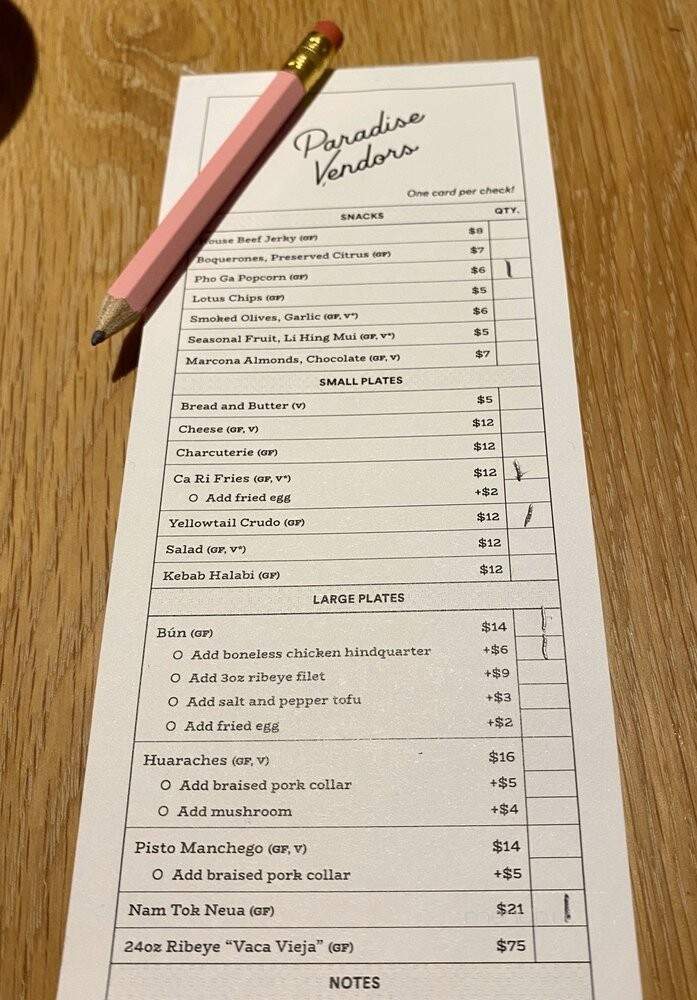 Paradise
Vendors
One card per check!
SNACKS QTY.
House Beef Jerky (GF) $8
Boquerones, Preserved Citrus (GF) $7
Pho Ga Popcorn (GF) $6 |
Lotus Chips (GF) $5
Smoked Olives, Garlic (GF, V*) $6
Seasonal Fruit, Li Hing Mui (GF, V*) $5
Marcona Almonds, Chocolate (GF, V) $7
SMALL PLATES
Bread and Butter (V) $5
Cheese (GF, V) $12
Charcuterie (GF) $12
Ca Ri Fries (GF, V*) $12 |
O Add fried egg +$2
Yellowtail Crudo (GF) $12 /
Salad (GF, V*) $12
Kebab Halabi (GF) $12
LARGE PLATES
Bún (GF) $14
O Add boneless chicken hindquarter +$6
O Add 3oz ribeye filet +$9
O Add salt and pepper tofu +$3
O Add fried egg +$2
Huaraches (GF, V) $16
O Add braised pork collar +$5
O Add mushroom +$4
Pisto Manchego (GF, V) $14
O Add braised pork collar +$5
Nam Tok Neua (GF) $21 |
24oz Ribeye “Vaca Vieja” (GF) $75
NOTES